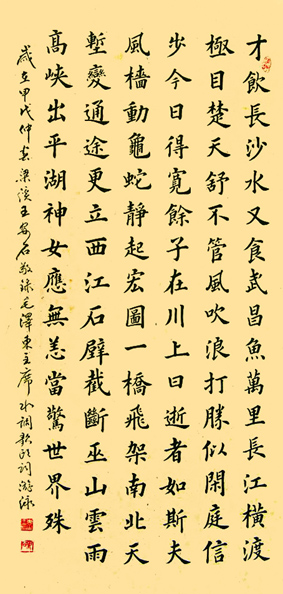 才飲長沙水又食武昌魚萬里長江橫渡
極目楚天舒不管風吹浪打勝似閑庭信
步今日得寬餘子在川上曰逝者如斯夫
風檣動龜蛇靜起宏圖一橋飛架南北天
塹變通途更立西江石壁截斷巫山雲雨
高峽出平湖神女應無恙當驚世界殊
歲在甲戌仲梁溪王石敬錄毛澤東主席水調歌頭詞游泳